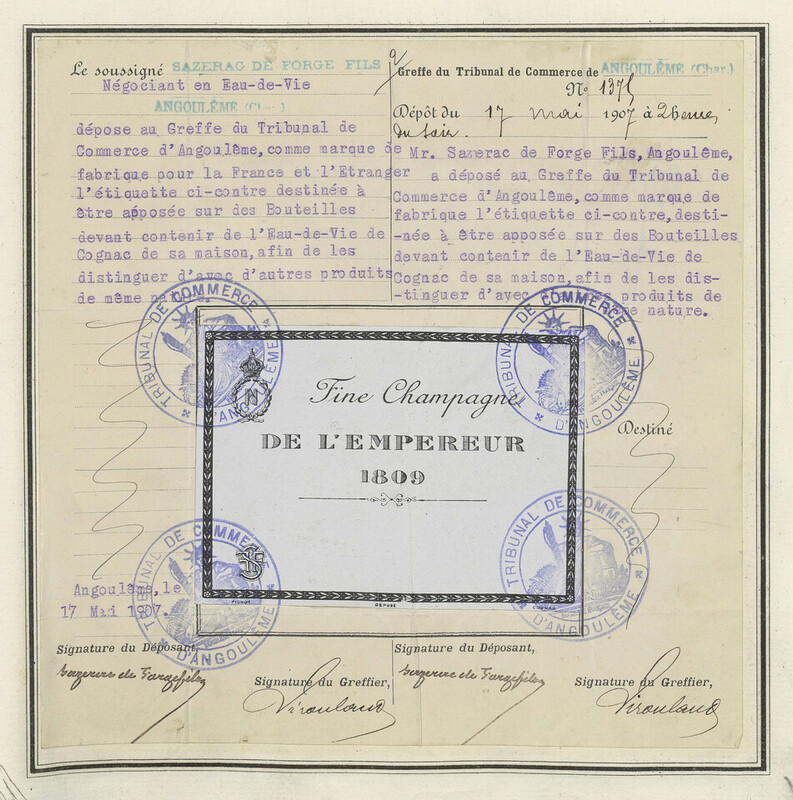 Le soussigné SAZERAC DE FORGE FILS
Négociant en Eau-de-Vie
ANGOULÊME (Char.)
dépose au Greffe du Tribunal de
Commerce d'Angoulême, comme marque de
fabrique pour la France et l'Etranger
l'étiquette ci-contre destinée à
être apposée sur des Bouteilles
devant contenir de l'Eau-de-Vie de
Cognac de sa maison, afin de les
distinguer d'avec d'autres produits
de même
Greffe du Tribunal de Commerce de ANGOULÊME (Char.)
No 1375
Dépôt du 17 mai 1907 à 2 heures
du soir.
Mr. Sazerac de Forge Fils, Angoulême,
a déposé au Greffe du Tribunal de
Commerce d'Angoulême, comme marque de
fabrique l'étiquette ci-contre, desti-
-née à être apposée sur des Bouteilles
devant contenir de l'Eau-de-Vie de
Cognac de sa maison, afin de les dis-
-tinguer d'avec produits de
nature.
TRIBUNAL DE COMMERCE D'ANGOULÊME
TRIBUNAL DE COMMERCE D'ANGOULÊME
N
Fine Champagne
DE L'EMPEREUR
1809
DÉPOSÉ
COGNAC
Destiné
TRIBUNAL DE COMMERCE D'ANGOULÊME
TRIBUNAL DE COMMERCE D'ANGOULÊME
Angoulême, le
17 Mai 1907.
Signature du Déposant,
Sazerac de Forge fils
Signature du Greffier,
Signature du Déposant,
Sazerac de Forge fils
Signature du Greffier,